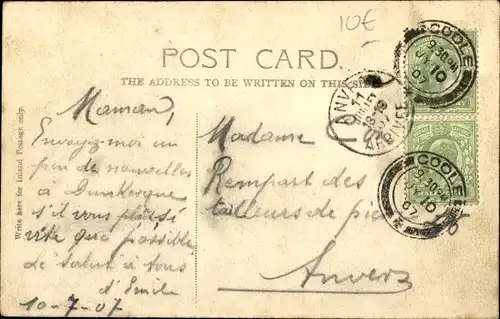 10€
POST CARD.
THE ADDRESS TO BE WRITTEN ON THIS SIDE
Write here for Inland Postage only.
Maman,
Envoyez-moi un
peu de nouvelles
a Dunkerque
s'il vous plait, si
vite que possible
de salut à tous
d'Emile
10-7-07
Madame
Rempart des
tailleurs de pie
Anvers
GOOLE
9.30PM
JY 10
07
ANVERS
11
18-19
07
ARRIVEE
GOOLE
9.30PM
JY 10
07